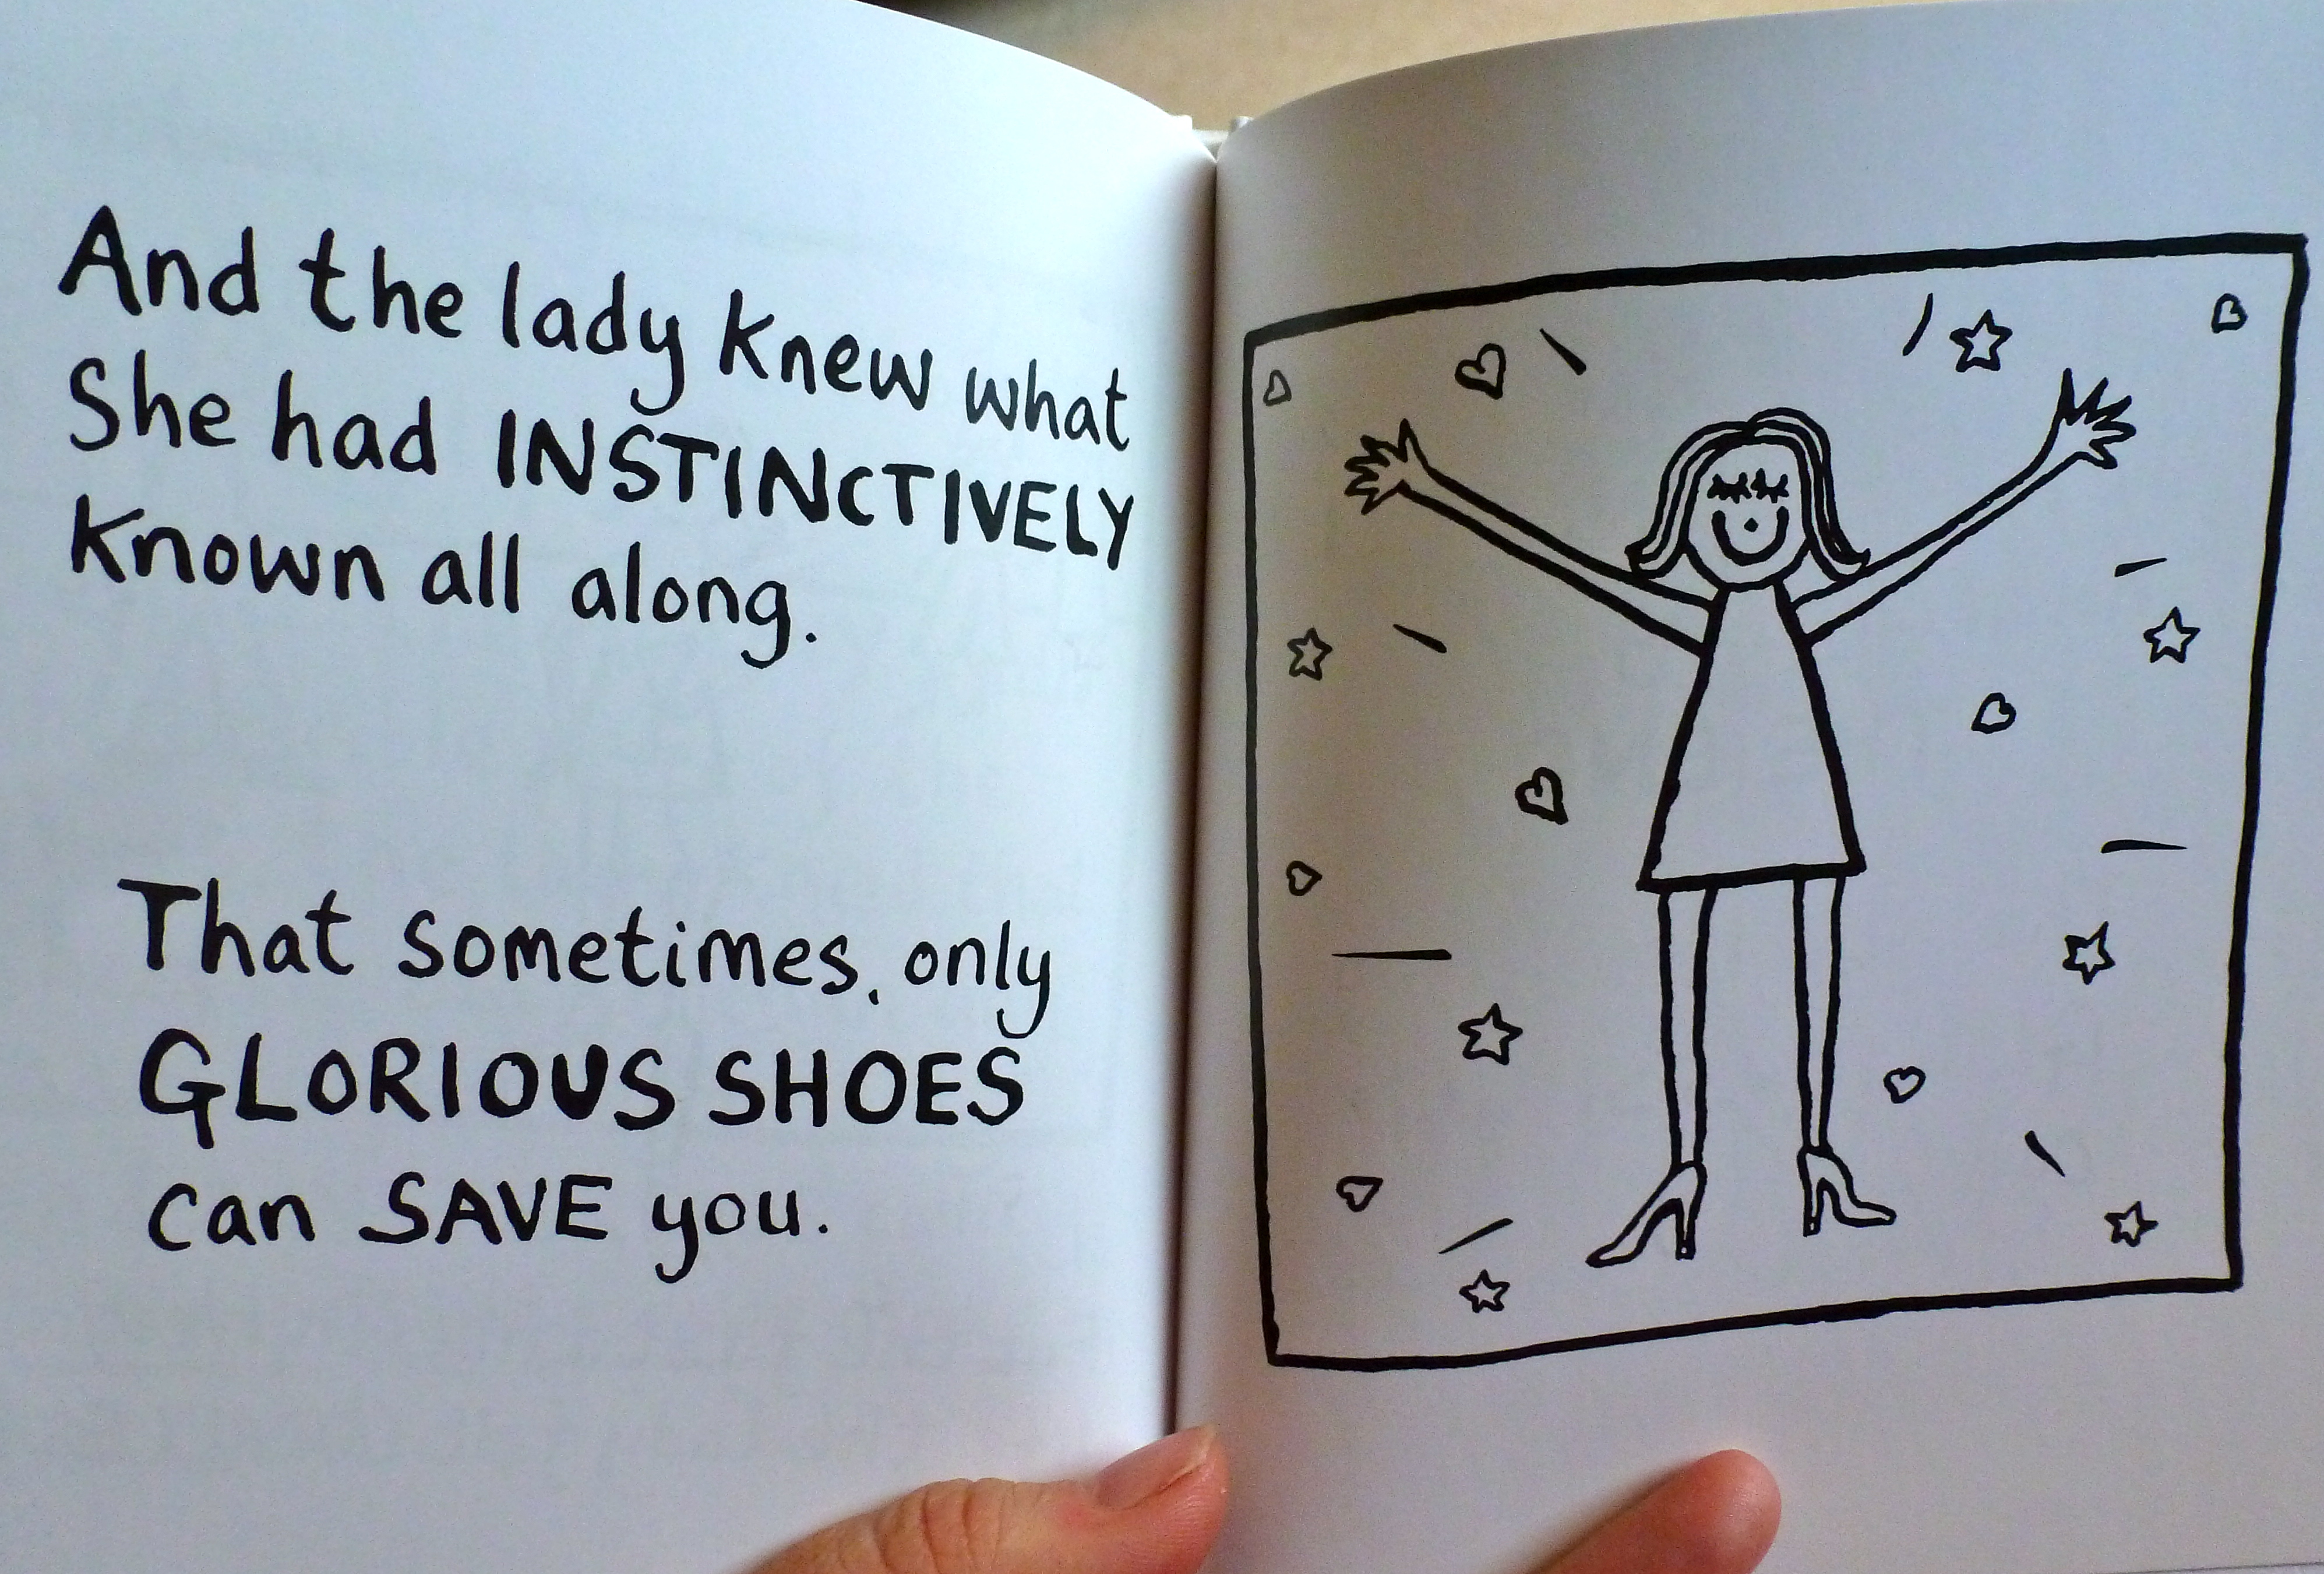 And the lady knew what
She had INSTINCTIVELY
known all along.
That sometimes, only
GLORIOUS SHOES
can SAVE you.